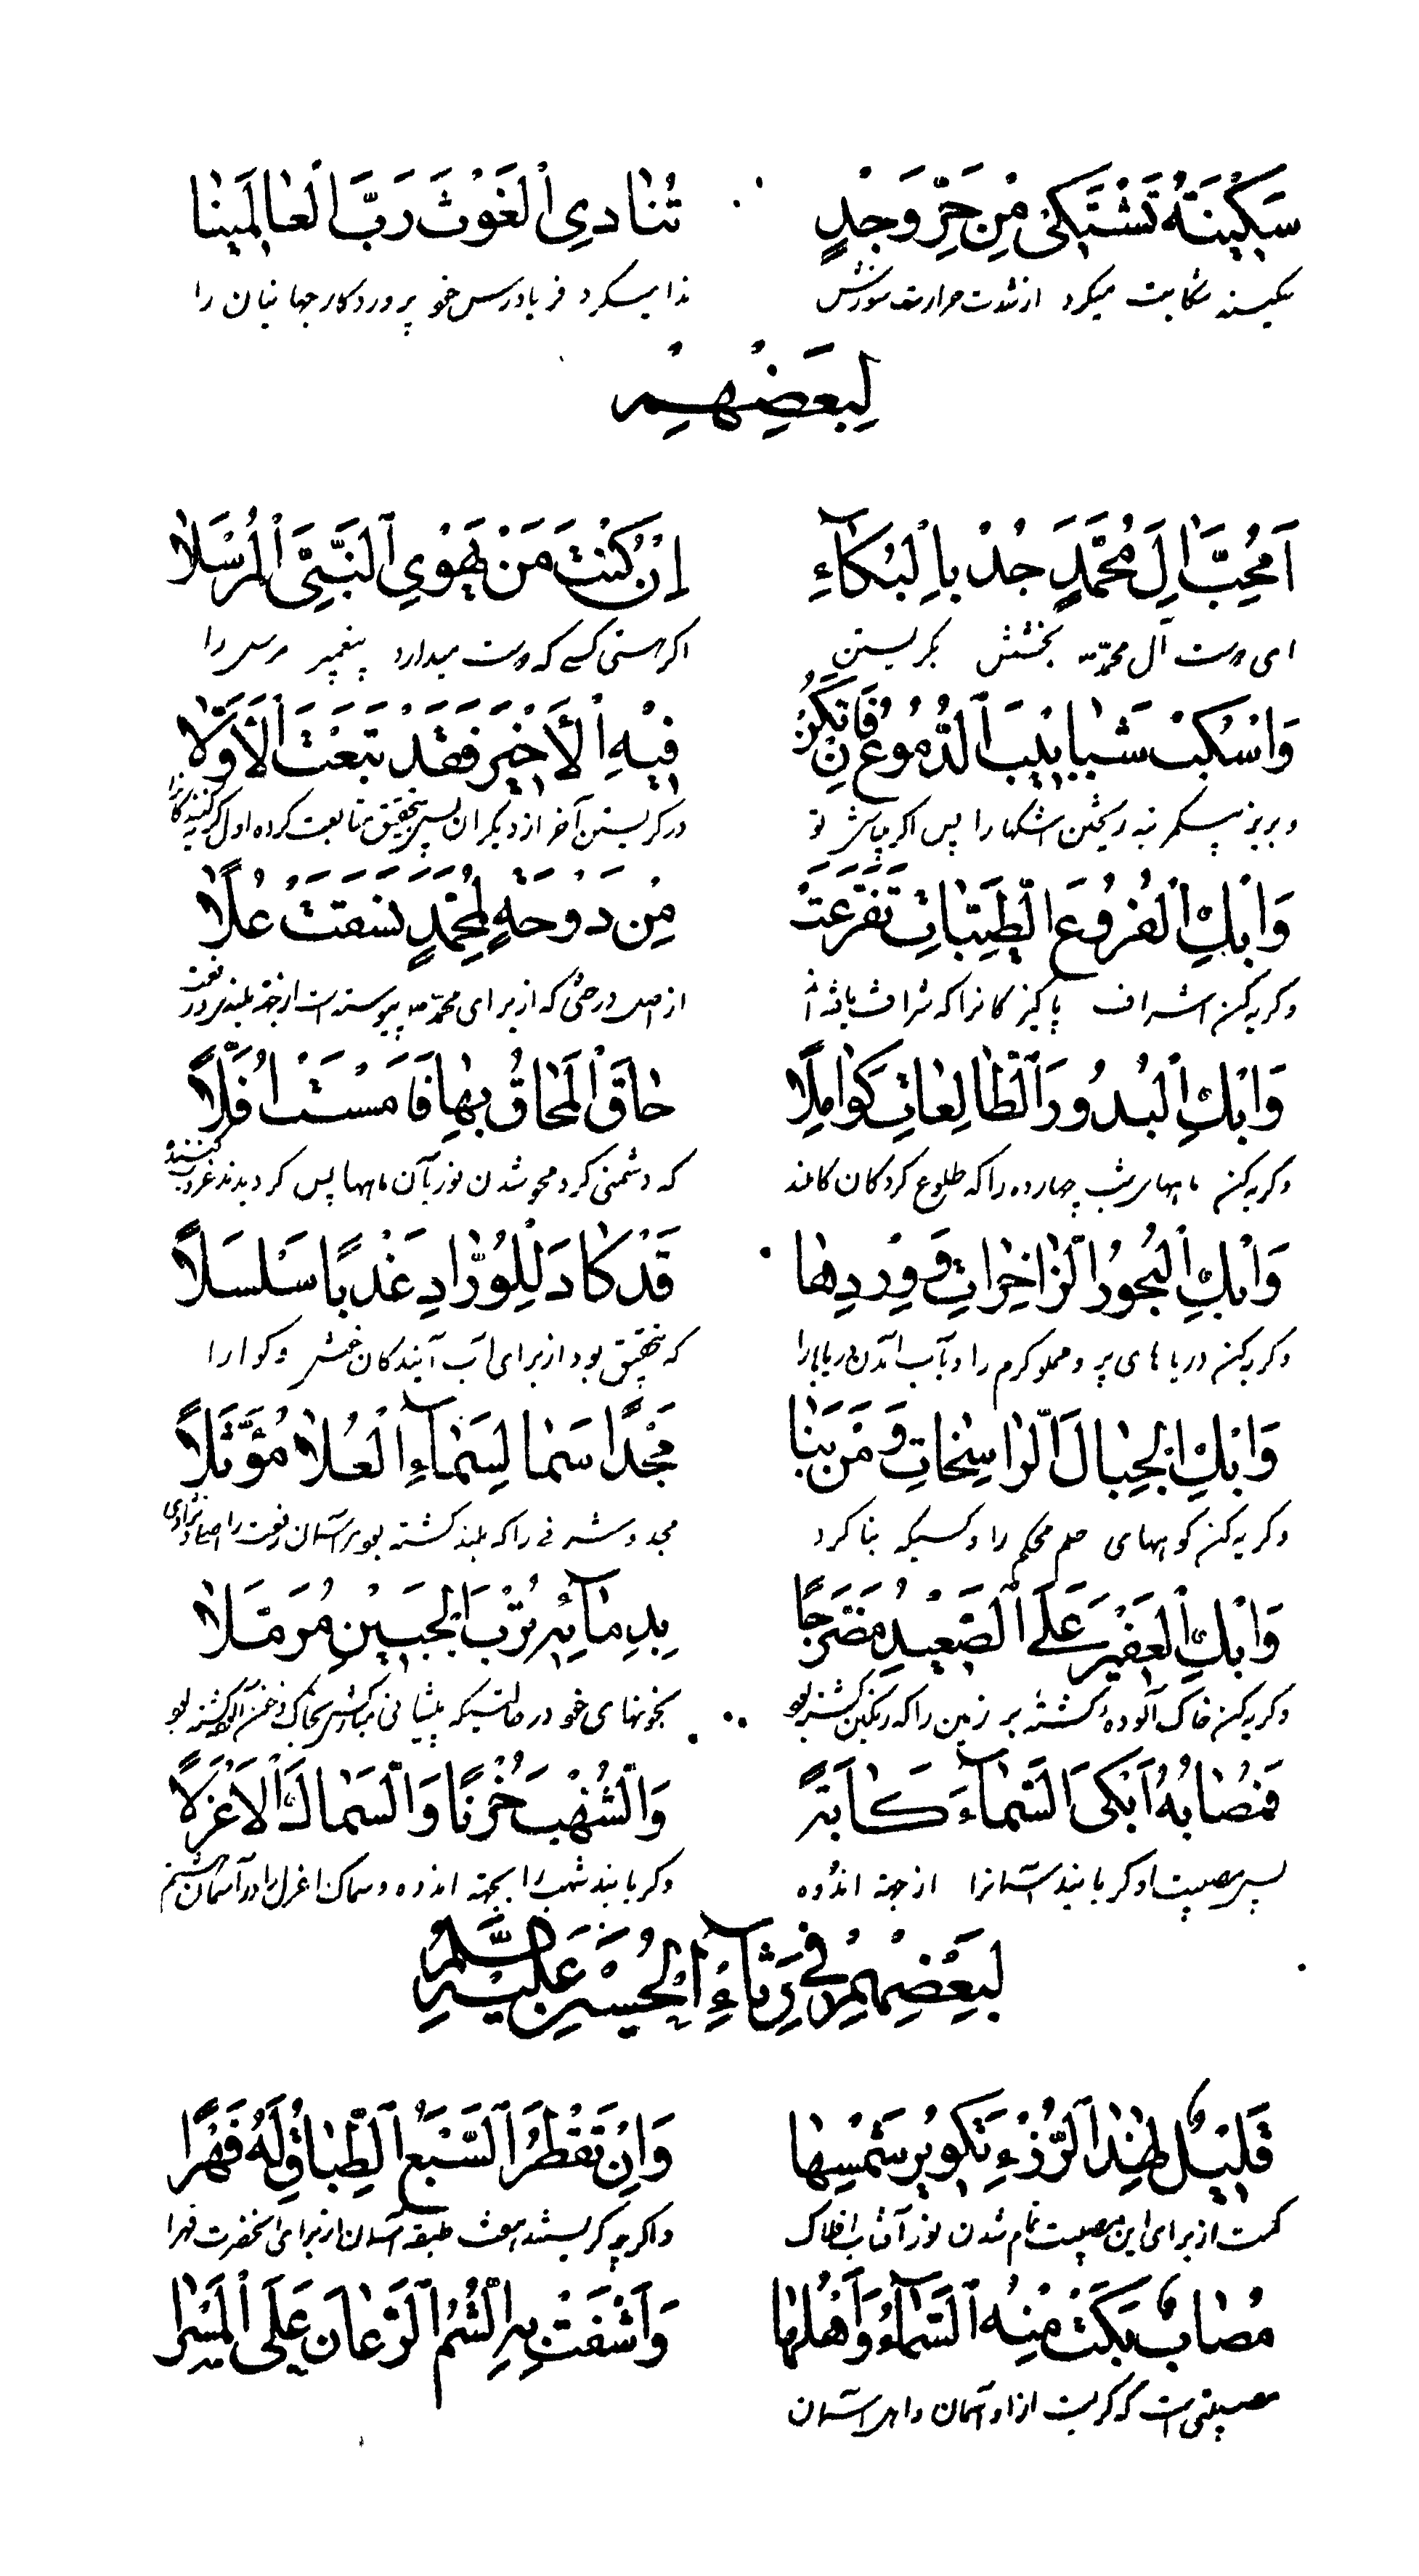 سَكِينَةُ تَشْتَكِي مِنْ حَرِّ وَجْدٍ تُنَادِي الْغَوْثَ رَبَّ الْعَالَمِينَا
سکینه شکایت میکرد از شدت حرارت سوزش ندا میکرد فریادرس خو پروردکار جهانیان را
لِبَعْضِهِمْ
اَمُحِبَّ الِ مُحَمَّدٍ جُدْ بِالْبُكَآءِ اِنْ كُنْتَ مَنْ يَهْوِي النَّبِيَّ الْمُرْسَلَا
ای دوست آل محمد بخشش بکریستن اکر هستی کسی که دوست میدارد پیغمبر مرسل را
وَاسْكُبْ شَبَابِيْبَ الدُّمُوْعِ فَاِنْ تَكُنْ فِيْهِ الْاَخِيْرَ فَقَدْ تَبَعْتَ الْاَوَّلَا
و بریز ریختن اشکها را پس اکر باشی تو در کریستن آخر از دیکران پس بتحقیق متابعت کرده اول کریه کنندکانرا
وَابْكِ الْفُرُوْعَ الطَّيِّبَاتِ تَفَرَّعَتْ مِنْ دَوْحَةٍ لِمُحَمَّدٍ بَسَقَتْ عُلًا
و کریه کن اشراف پاکیزه کانرا که شرافت یافته از اصل درختی که از برای محمد پیوسته است
وَابْكِ الْبُدُوْرَ الطَّالِعَاتِ كَوَامِلًا حَاقَ الْمَحَاقُ بِهَا فَامْسَتْ اُفَّلًا
و کریه کن ماههای شب چهارده را که طلوع کردکان کاملند که دشمنی کرد محو شدن نور بآن ماهها پس کردیدند غروب کننده
وَابْكِ الْبُحُوْرَ الزَّاخِرَاتِ وَوِرْدِهَا قَدْ كَادَ لِلْوُرَّادِ عَذْبًا سَلْسَلًا
و کریه کن دریاهای پر و مملو کرم را و بآب آمدن دریاها را که بتحقیق بود از برای آب آیندکان خوش و کوارا
وَابْكِ الْجِبَالَ الرَّاسِخَاتِ وَمَنْ بَنَا مَجْدًا سَمَا لِسَمَآءِ الْعُلَا مُؤَثَّلًا
و کریه کن کوههای حلم محکم را و کسیکه بنا کرد مجد و شرفی را که بلند کشته بود بر آسمان رفعت را
وَابْكِ الْعَفِيْرَ عَلَى الصَّعِيْدِ مُضَرَّجًا بِدِمَآئِهِ تُرْبَ الْجَبِيْنِ مُرَمَّلًا
و کریه کن خاک آلوده کشته بر زمین را که رنکین کشته بود بخونهای خود در حالتیکه پیشانی مبارکش بخاک و خون آلوده کشته بود
فَمُصَابُهُ اَبْكَى السَّمَآءَ كَابَةً وَالشُّهْبَ حُزْنًا وَالسَّمَاكَ الْاَعْزَلَا
پس مصیبت او کریانید آسمانرا از جهة اندوه و کریانید شهب را بجهة اندوه و سماک اعزل را در آسمان هشتم
لِبَعْضِهِمْ فِي رِثَآءِ الْحُسَيْنِ عَلَيْهِ السَّلَمُ
قَلِيْلٌ لِهٰذَا الرُّزْءِ تَكْوِيْرُ شَمْسِهَا وَاِنْ تَقْطُرَ السَّبْعُ الطِّبَاقُ لَهُ قَهْرًا
کمست از برای این مصیبت تمام شدن نور آفتاب افلاک و اکرچه کریستند هفت طبقه آسمان از برای آنحضرت قهرا
مُصَابٌ بَكَتْ مِنْهُ السَّمَآءُ وَاَهْلُهَا وَاَشْفَتْ بِهِ الشُّمُّ الرَّعَانُ عَلَى الْمَسْرَا
مصیبتی است که کریست از او آسمان و اهل آسمان